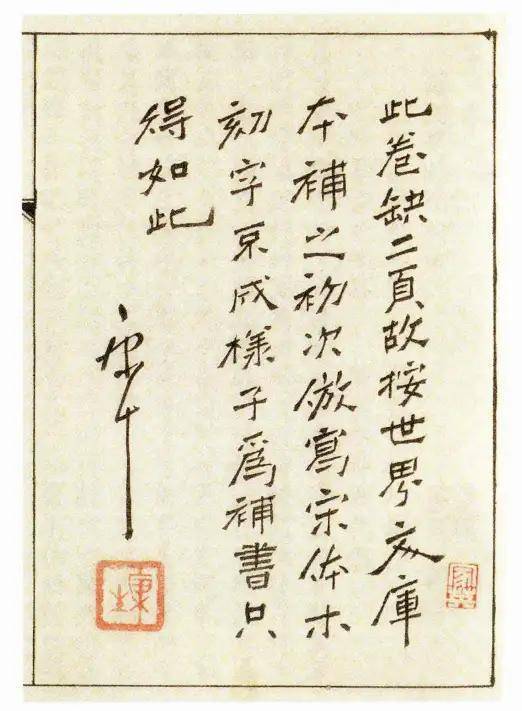 此卷缺二頁故按世界文庫
本補之初次倣寫宋体木
刻字成樣子爲補書只
得如此
康生